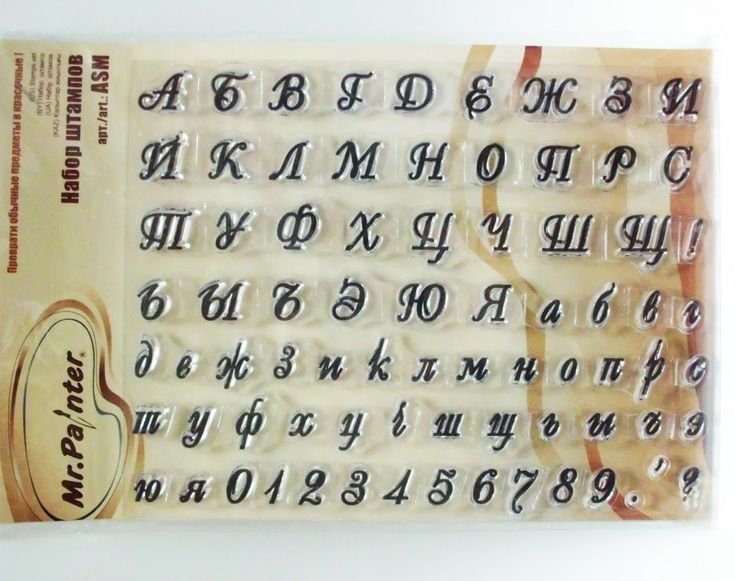 Преврати обычные предметы в красочные!
(RUS) Stamps set
(BY) Набор штампаў
(UA) Набір штампів
(KAZ) Калыптар жиынтығы
Набор штампов
арт./art.: ASM
Mr.Painter®
А Б В Г Д Е Ж З И
Й К Л М Н О П Р С
Т У Ф Х Ц Ч Ш Щ !
Ь Ы Ъ Э Ю Я а б в г
д е ж з и к л м н о п р с
т у ф х ц ч ш щ ь ы ъ э
ю я 0 1 2 3 4 5 6 7 8 9 . ' ?